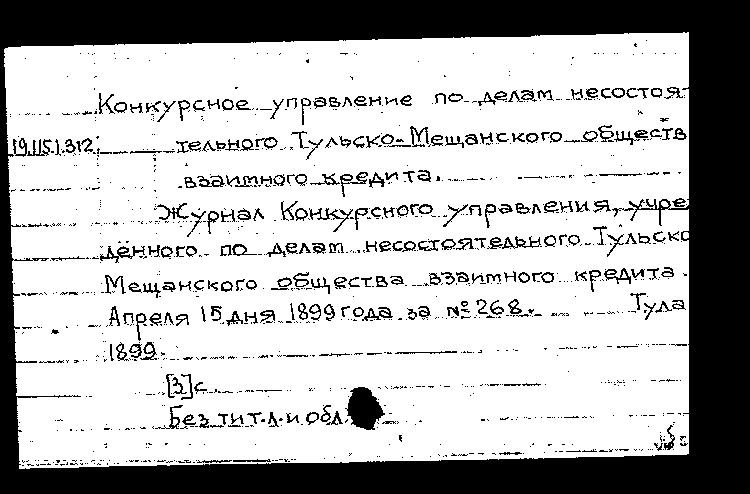 Конкурсное управление по делам несостоя-
19.115.1.312. тельного Тульско-Мещанского обществ
взаимного кредита.
Журнал Конкурсного управления, учре
дённого по делам несостоятельного Тульско
Мещанского общества взаимного кредита.
Апреля 15 дня 1899 года за № 268. Тула
1899.
[3]с.
Без тит.л. и обл.